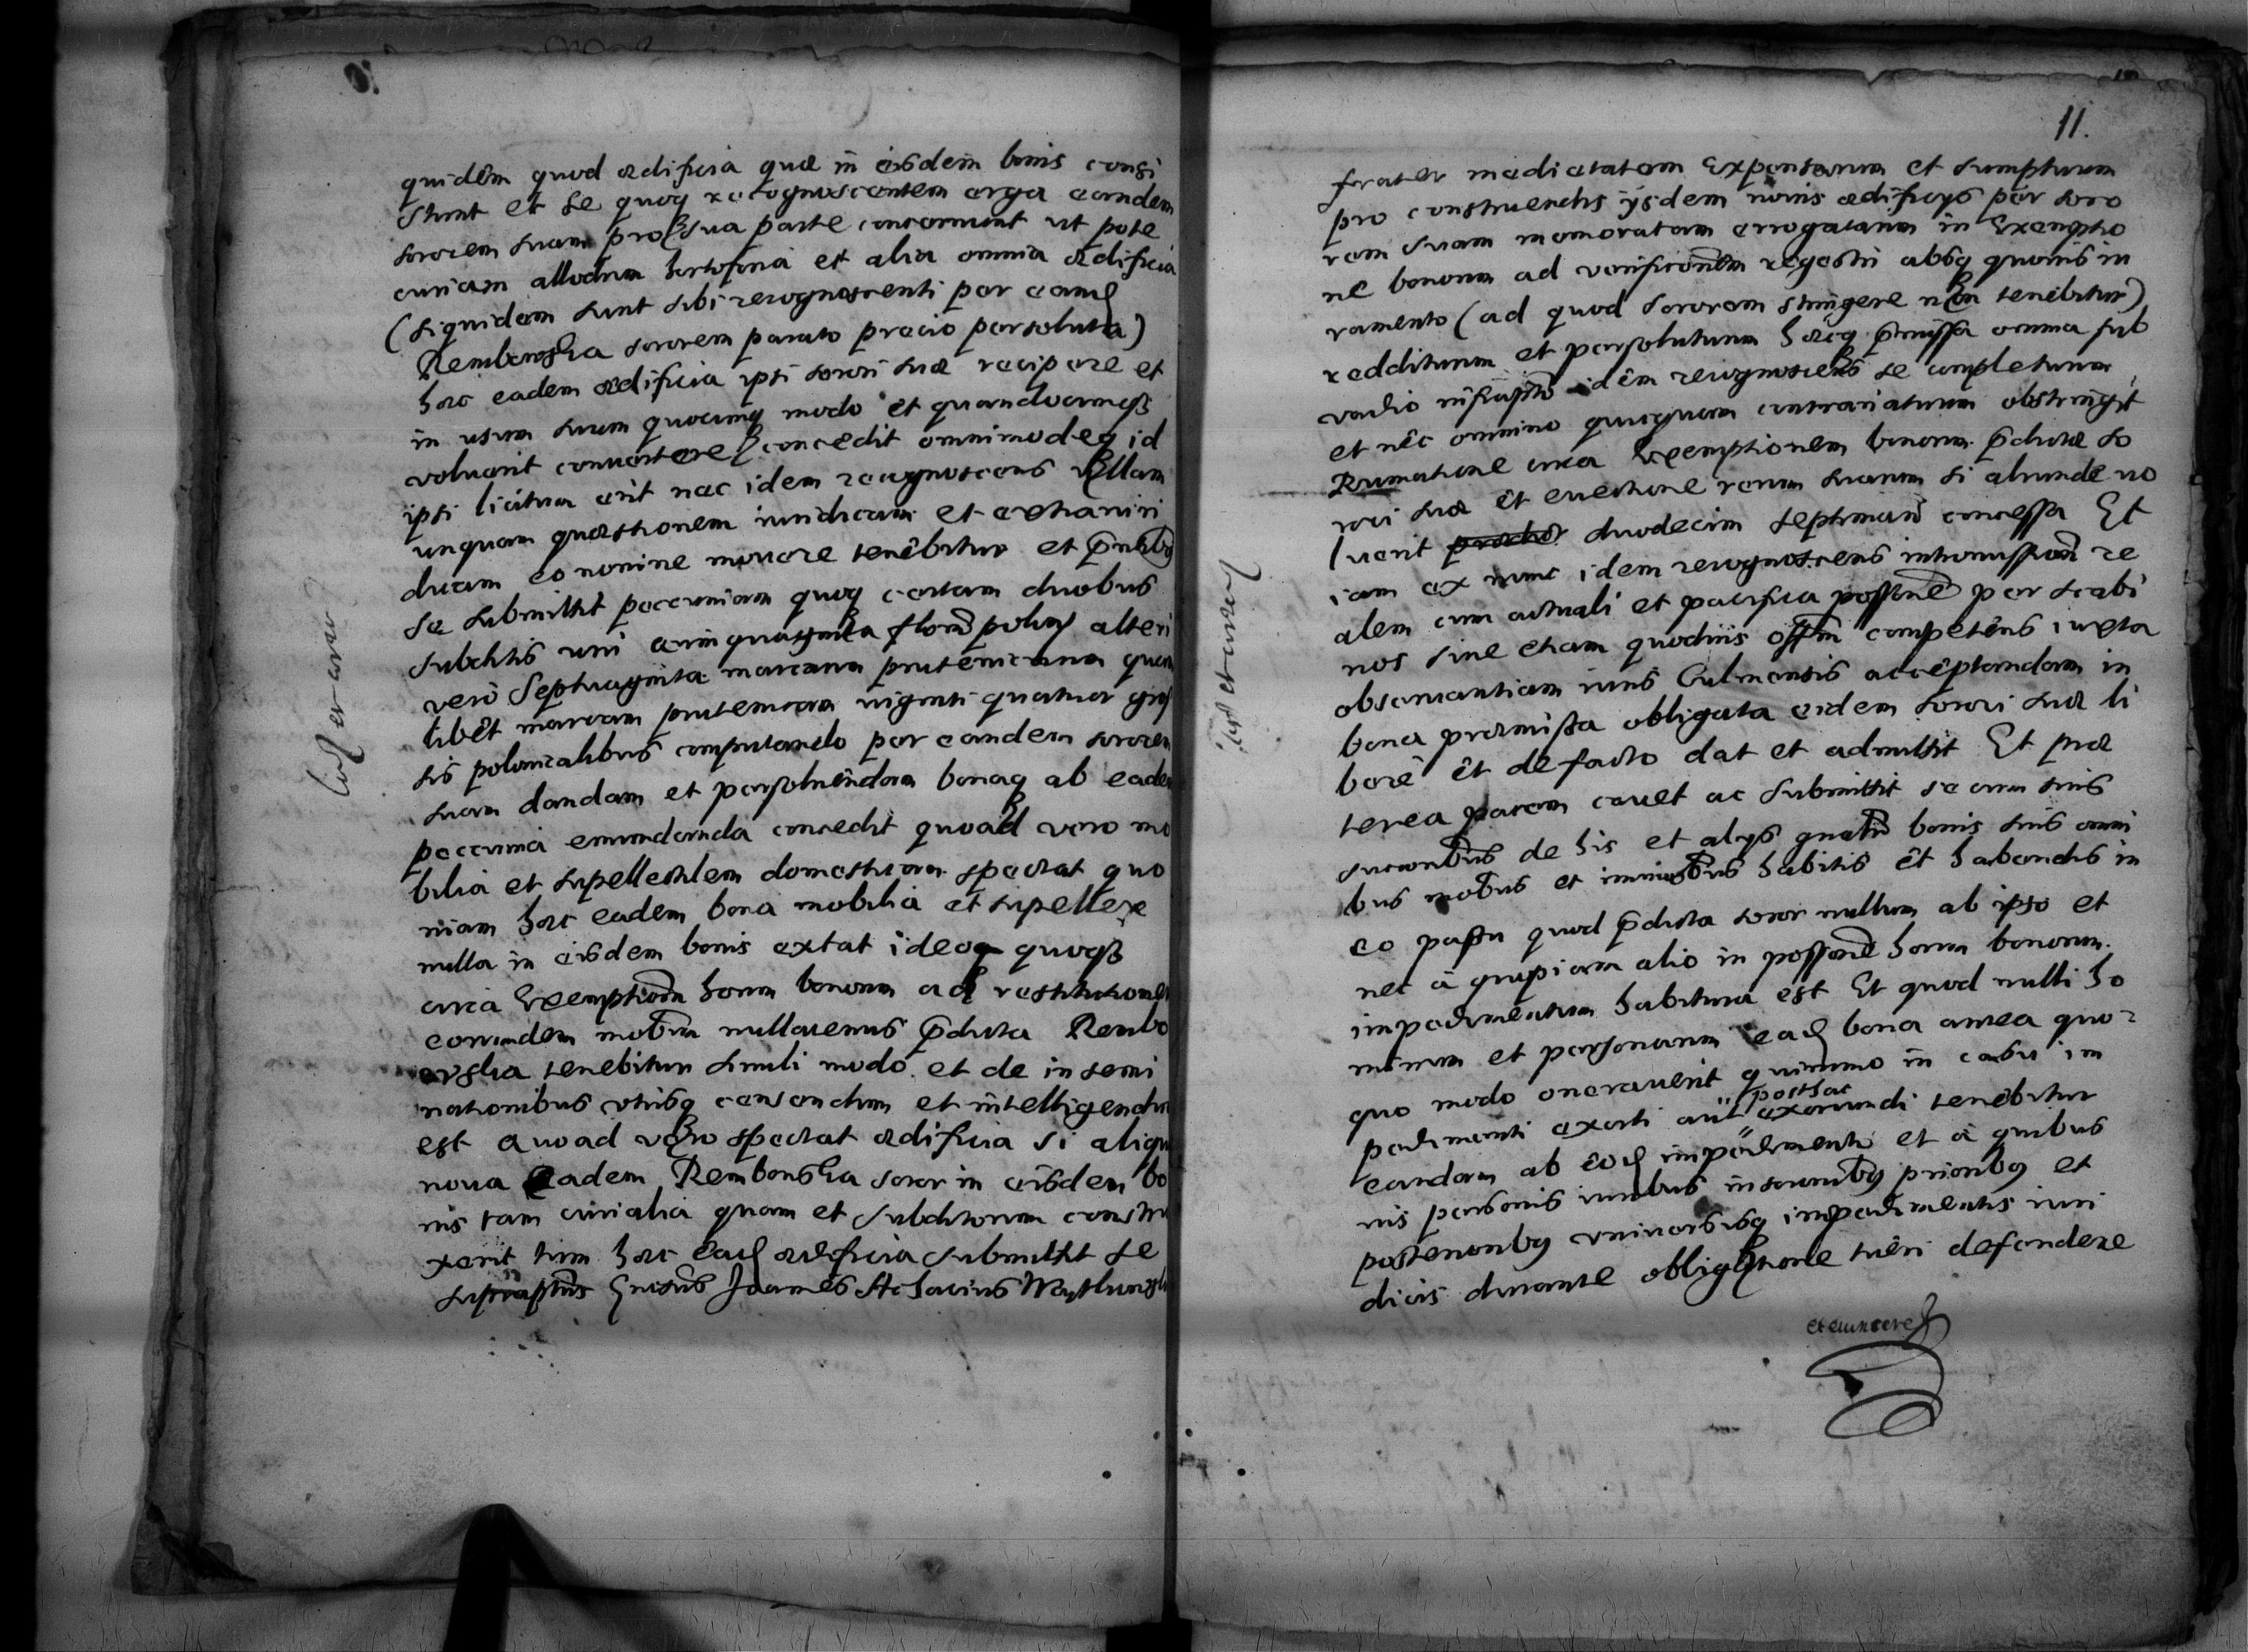 quidem quod ædificia quæ in eisdem bonis consi
stunt et se quoq recognoscentem erga eandem
sororem suam pro sua parte concernunt ut pote
curiam allodium hortosina et alia omnia ædificia
(siquidem sunt sibi recognoscenti per eand
Rembowska sororem parato precio persoluta)
hæc eadem ædificia ipsi sorori suæ recipere et
in usum suum quocunq modo et quandocunq
voluerit convertere concedit omnimodeq id
ipsi licitum erit nec idem recognoscens ullam
unquam quæstionem iuridicam et extraiuri
dicam eo nomine movere tenebitur et
se submittit pecuniam quoq certam duobus
subditis uni quinquaginta floren polon alteri
vero Septuaginta marcarum prutenicarum quam
libet marcam prutenicam viginti quatuor gros
sis polonicalibus computando per eandem sororem
suam dandam et persolvendam bonaq ab eadem
pecunia emundanda concedit quoad vero mo
bilia et supellectilem domesticam spectat quo
niam hæc eadem bona mobilia et supellex
nulla in eisdem bonis extat ideoq quoq
circa Exemptionem horum bonorum ad restitutionem
eorundem mobilium nullatenus prædicta Rembo
wska tenebitur simili modo et de in semi
nationibus utrisq censendum et intelligendum
est Quoad vero spectat ædificia si aliqu
nova Eadem Rembowska soror in eisdem bo
nis tam curialia quam et subditorum constru
xerit tum hæc ead ædificia submittit se
suprascriptus Joannes Achacius
11.
frater medietatem Expensarum et sumptuum
pro construendis ysdem novis ædificys per soro
rem suam memoratam errogatarum in Exemptio
ne bonorum ad verificationem regestri absq quovis iu
ramento (ad quod sororem stringere non tenebitur)
redditurum et persoluturum hæcq præmissa omnia sub
vadio infrascripto idem recognoscens se completurum
et nec omnino quicquam contraiaturum obstringit
Rumatione circa Exemptionem bonorum prædictæ so
rori suæ et evectione rerum suarum si aliunde vo
luerit duodecim septimanar concessa Et
iam ex nunc idem recognoscens intromissionem re
alem cum actuali et pacifica possione per scabi
nos sive etiam quodvis offm competens iuxta
observantiam iuris Culmensis acceptandam in
bona præmissa obligata eidem sorori suæ li
bere et de facto dat et admittit Et præ
terea pacem cavet ac submittit se cum suis
succoribus de his et alys gnatr bonis suis omni
bus mobus et immobus habitis et habendis in
eo passu quod prædicta soror nullum ab ipso et
nec a quopiam alio in possione horum bonorum
impedimentum habitura est Et quod nulli ho
minum et personarum ead bona antea quo
quo modo oneraverit quinimo in casu im
pedimenti exorti aut posthac exoriundi tenebitur
eandem ab eod impedimento et a quibus
vis personis iuribus inscriptionibq prioribq et
posterioribq universisq impedimentis iuri
dicis durante obligatione tueri defendere
et evincere